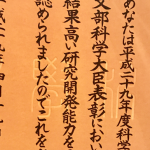 あなたは平成二十九年度科学
文部科学大臣表彰におい
結果高い研究開発能力を
認められましたのでこれを